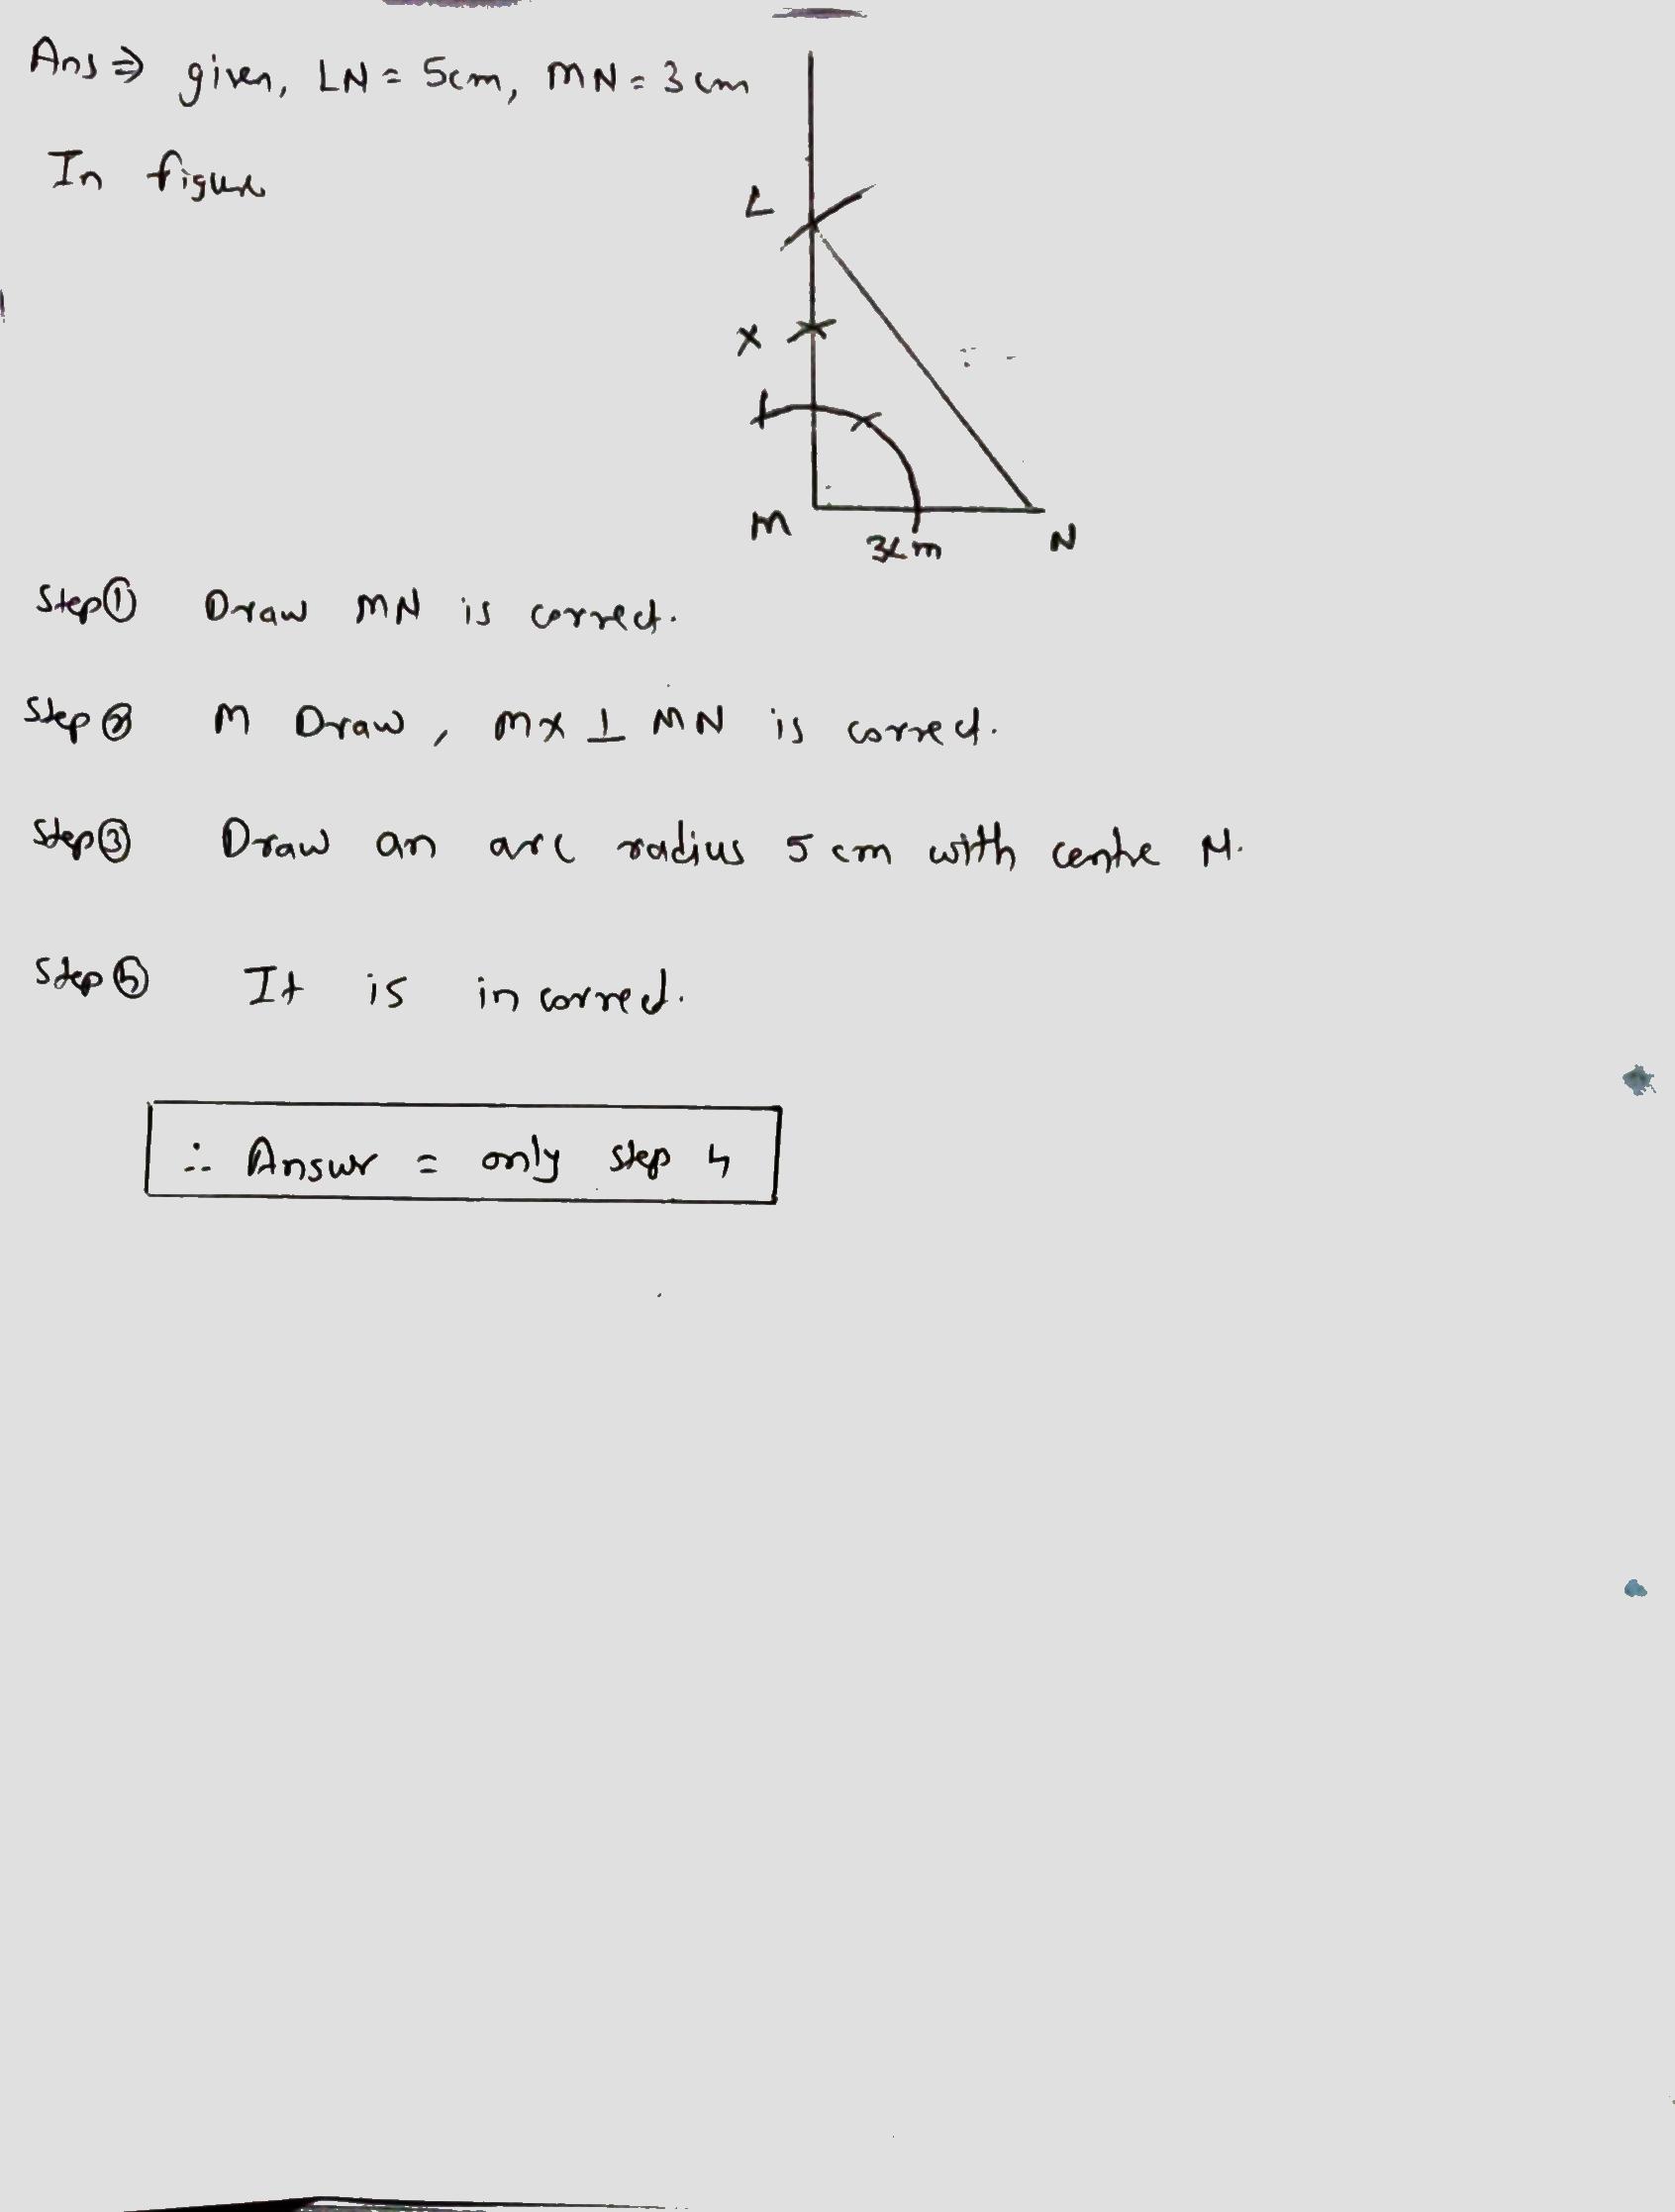 Ans ⇒ given, LN = 5cm, MN = 3cm
In figure
L
X
M
3cm
N
Step ① Draw MN is correct.
Step ② M Draw, MX ⊥ MN is correct.
Step ③ Draw an arc radius 5 cm with centre M.
Step ④ It is incorrect.
∴ Answr = only step 4